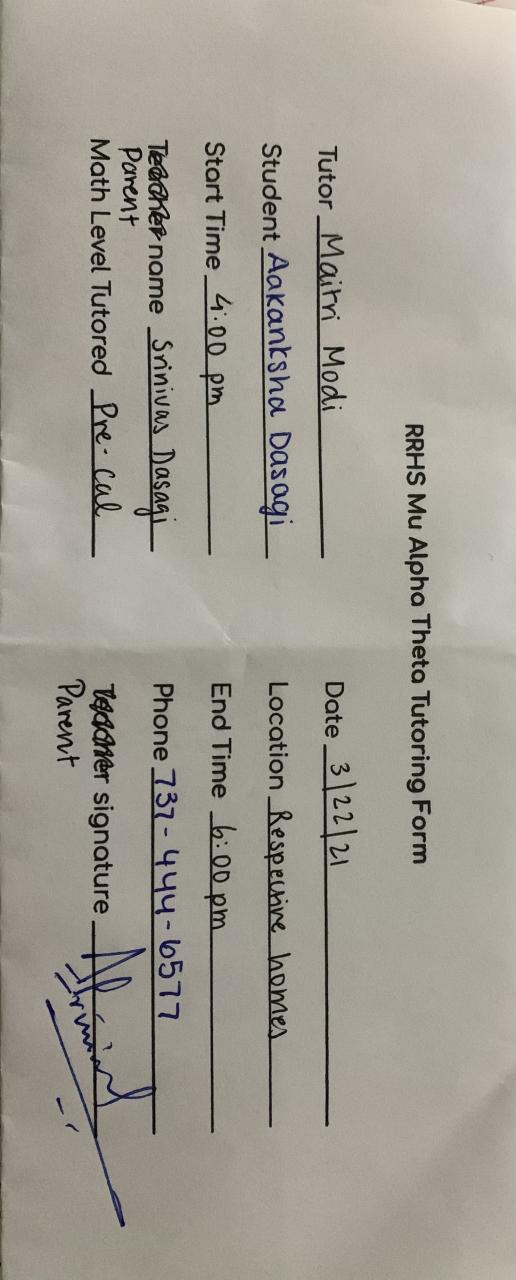 RRHS Mu Alpha Theta Tutoring Form
Tutor Maitri Modi
Date 3/22/21
Student Aakanksha Dasagi
Location Respective homes
Start Time 4:00 pm
End Time 6:00 pm
Teacher name Srinivas Dasagi
Parent
Phone 737-444-6577
Math Level Tutored Pre-Cal
Teacher signature
Parent